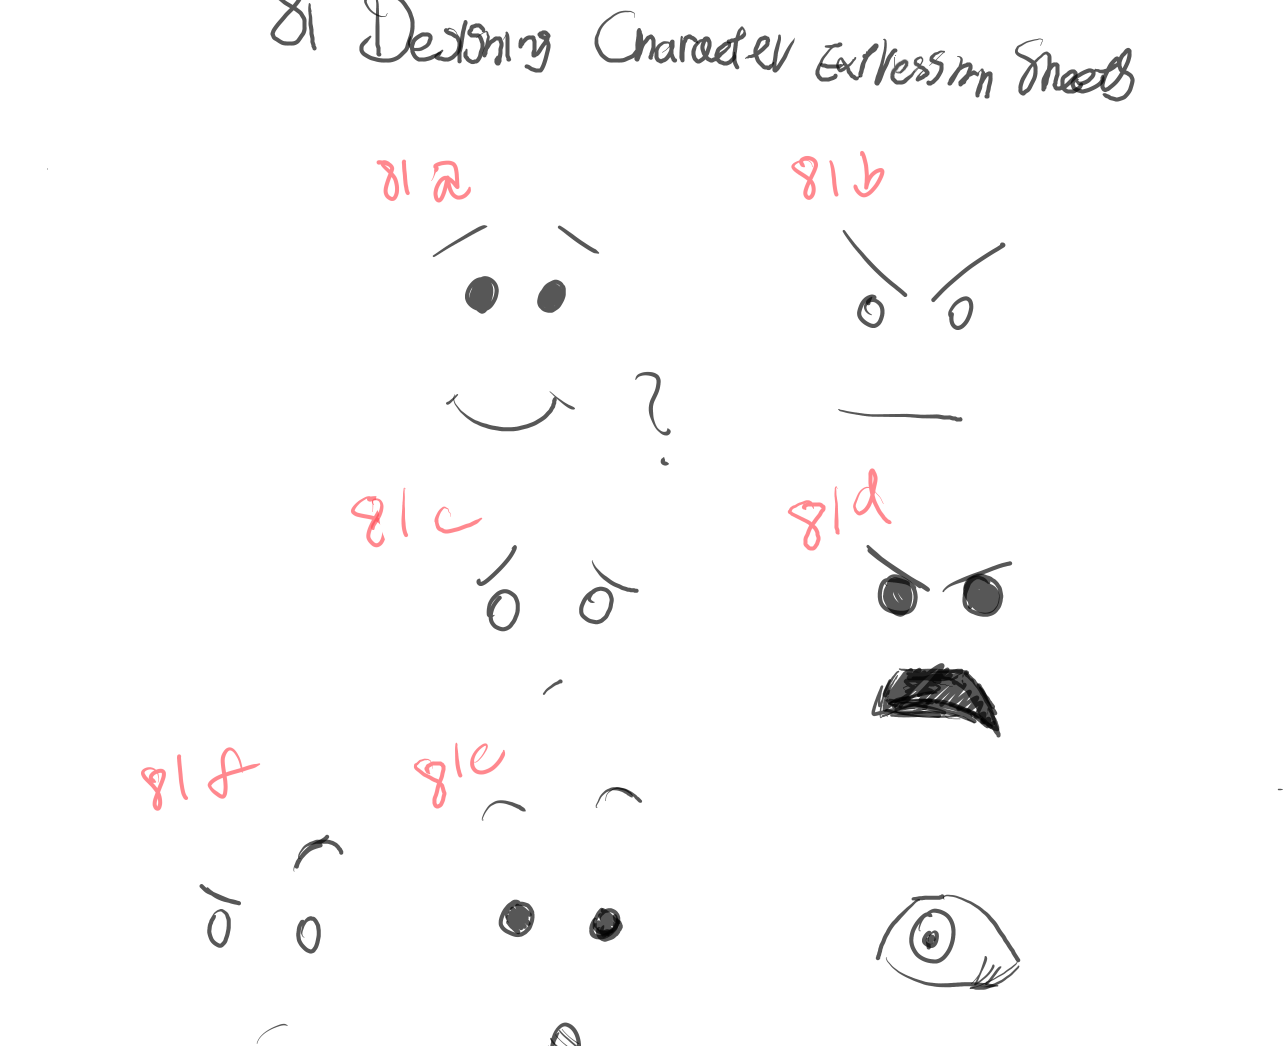 81 Designing Character Expression Sheets
81 a
81 b
?
81 c
81 d
81 f
81 e